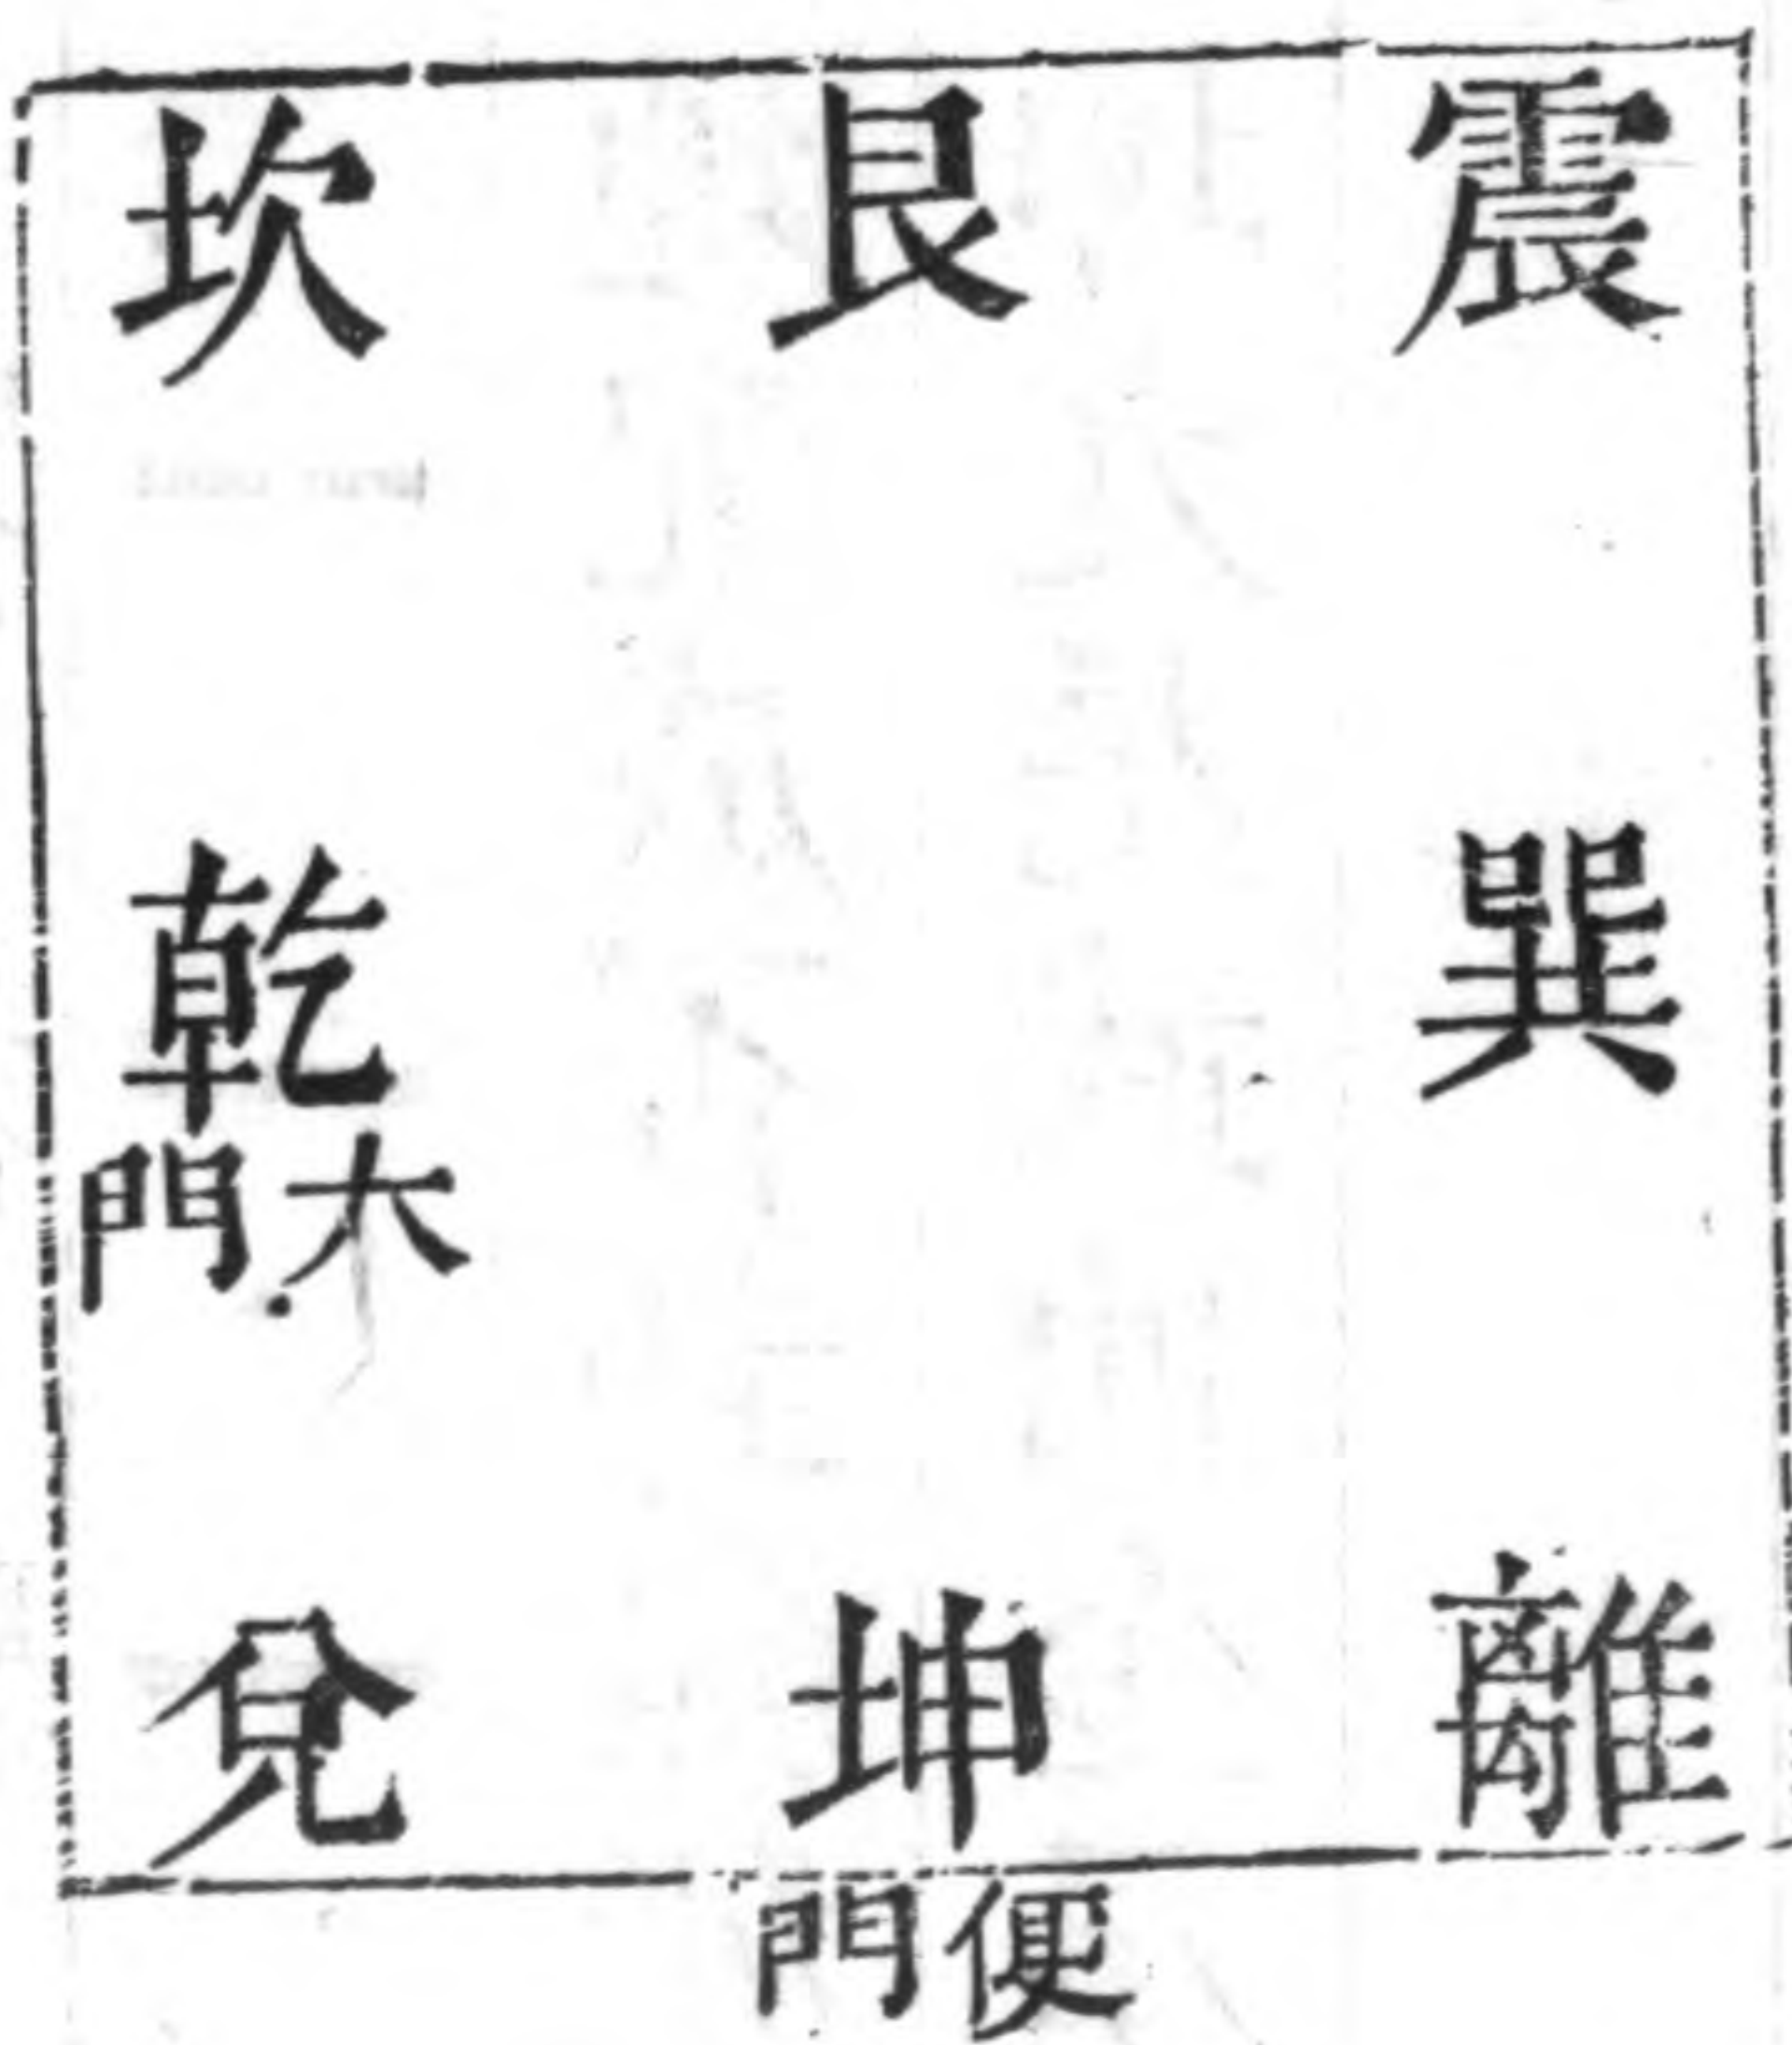 震
艮
坎
巽
乾
大門
離
坤
兌
便門